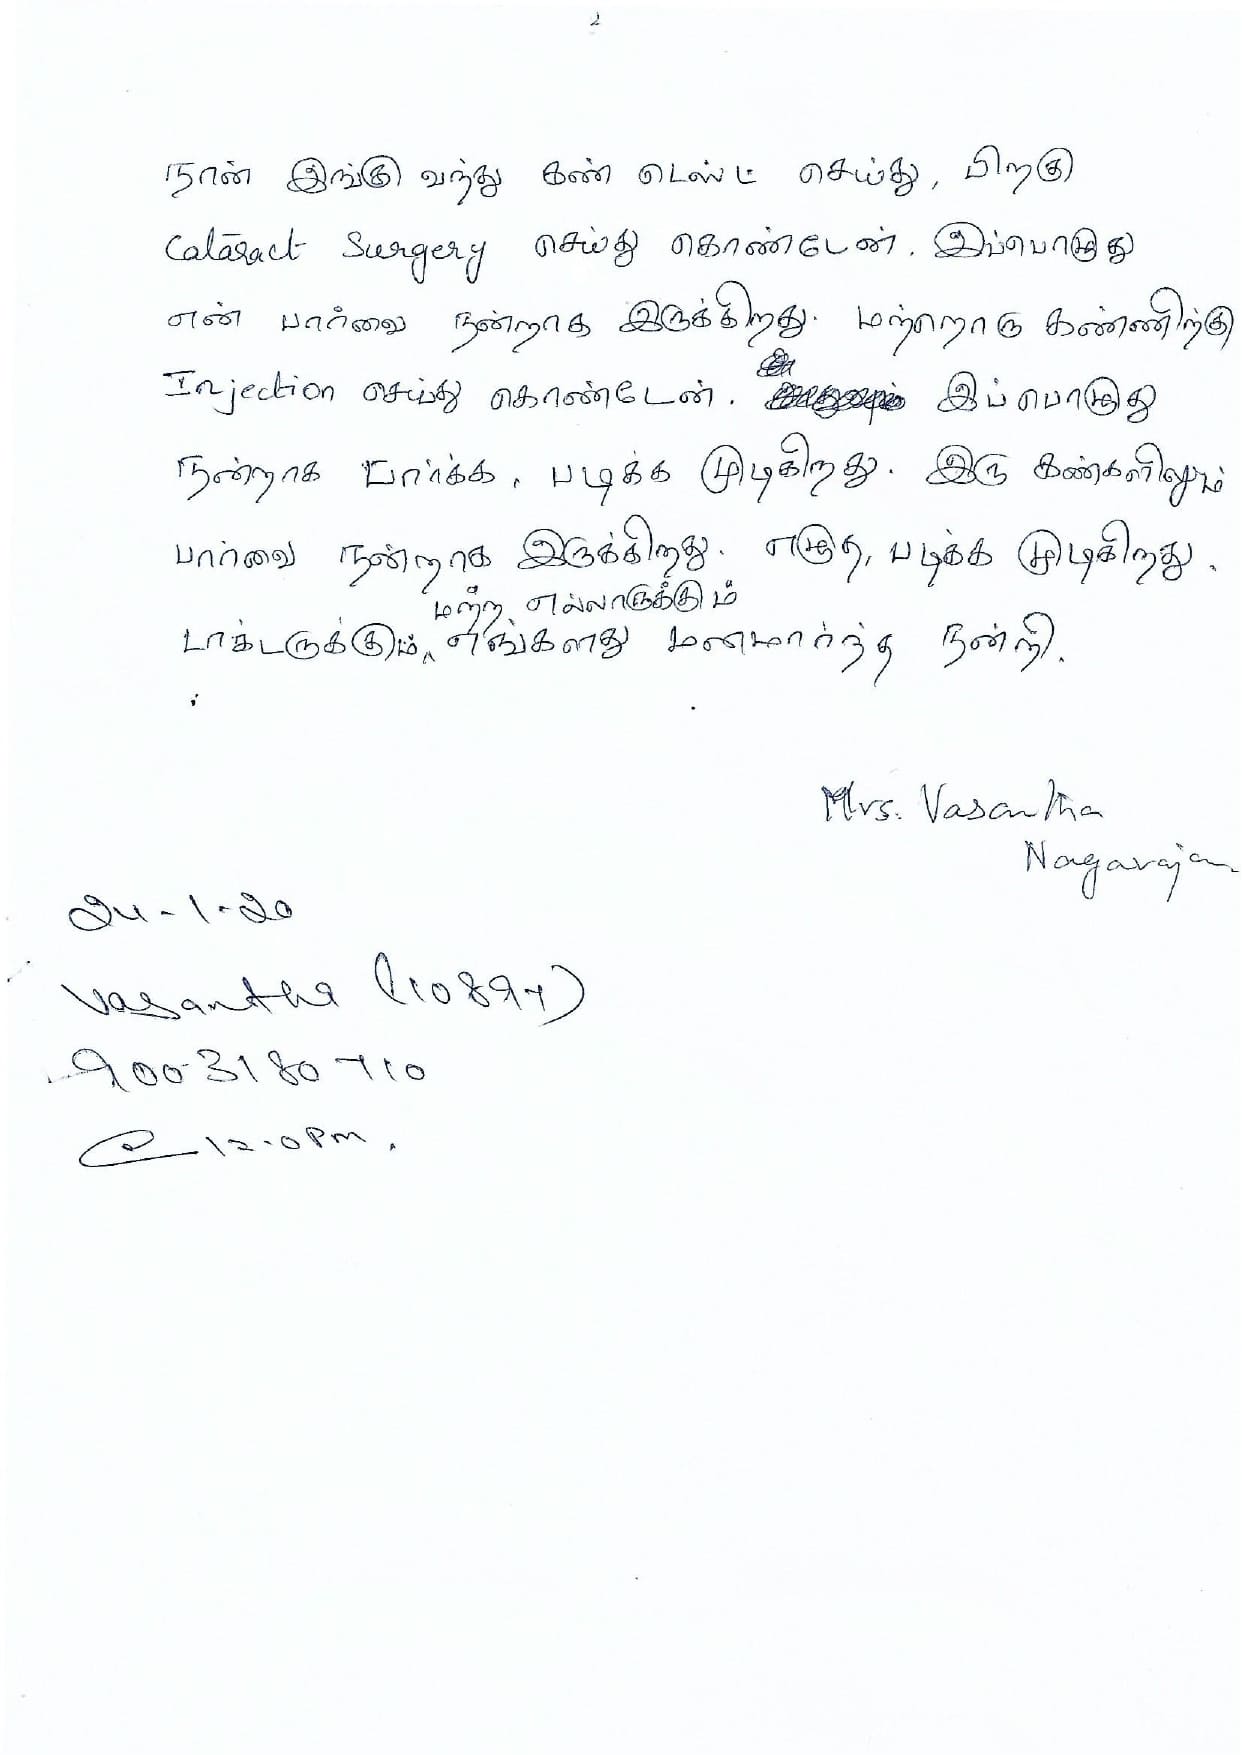 நான் இங்கு வந்து கண் டெஸ்ட் செய்து, பிறகு
Cataract Surgery செய்து கொண்டேன். இப்பொழுது
என் பார்வை நன்றாக இருக்கிறது. மற்றொரு கண்ணிற்கு
Injection செய்து கொண்டேன். இப்பொழுது
நன்றாக பார்க்க, படிக்க முடிகிறது. இரு கண்களிலும்
பார்வை நன்றாக இருக்கிறது. எழுத, படிக்க முடிகிறது.
மற்ற எல்லாருக்கும்
டாக்டருக்கும், எங்களது மனமார்ந்த நன்றி.
Mrs. Vasantha
Nagarajan
24-1-20
Vasantha (110897)
9003180710
@ 12.0 PM.